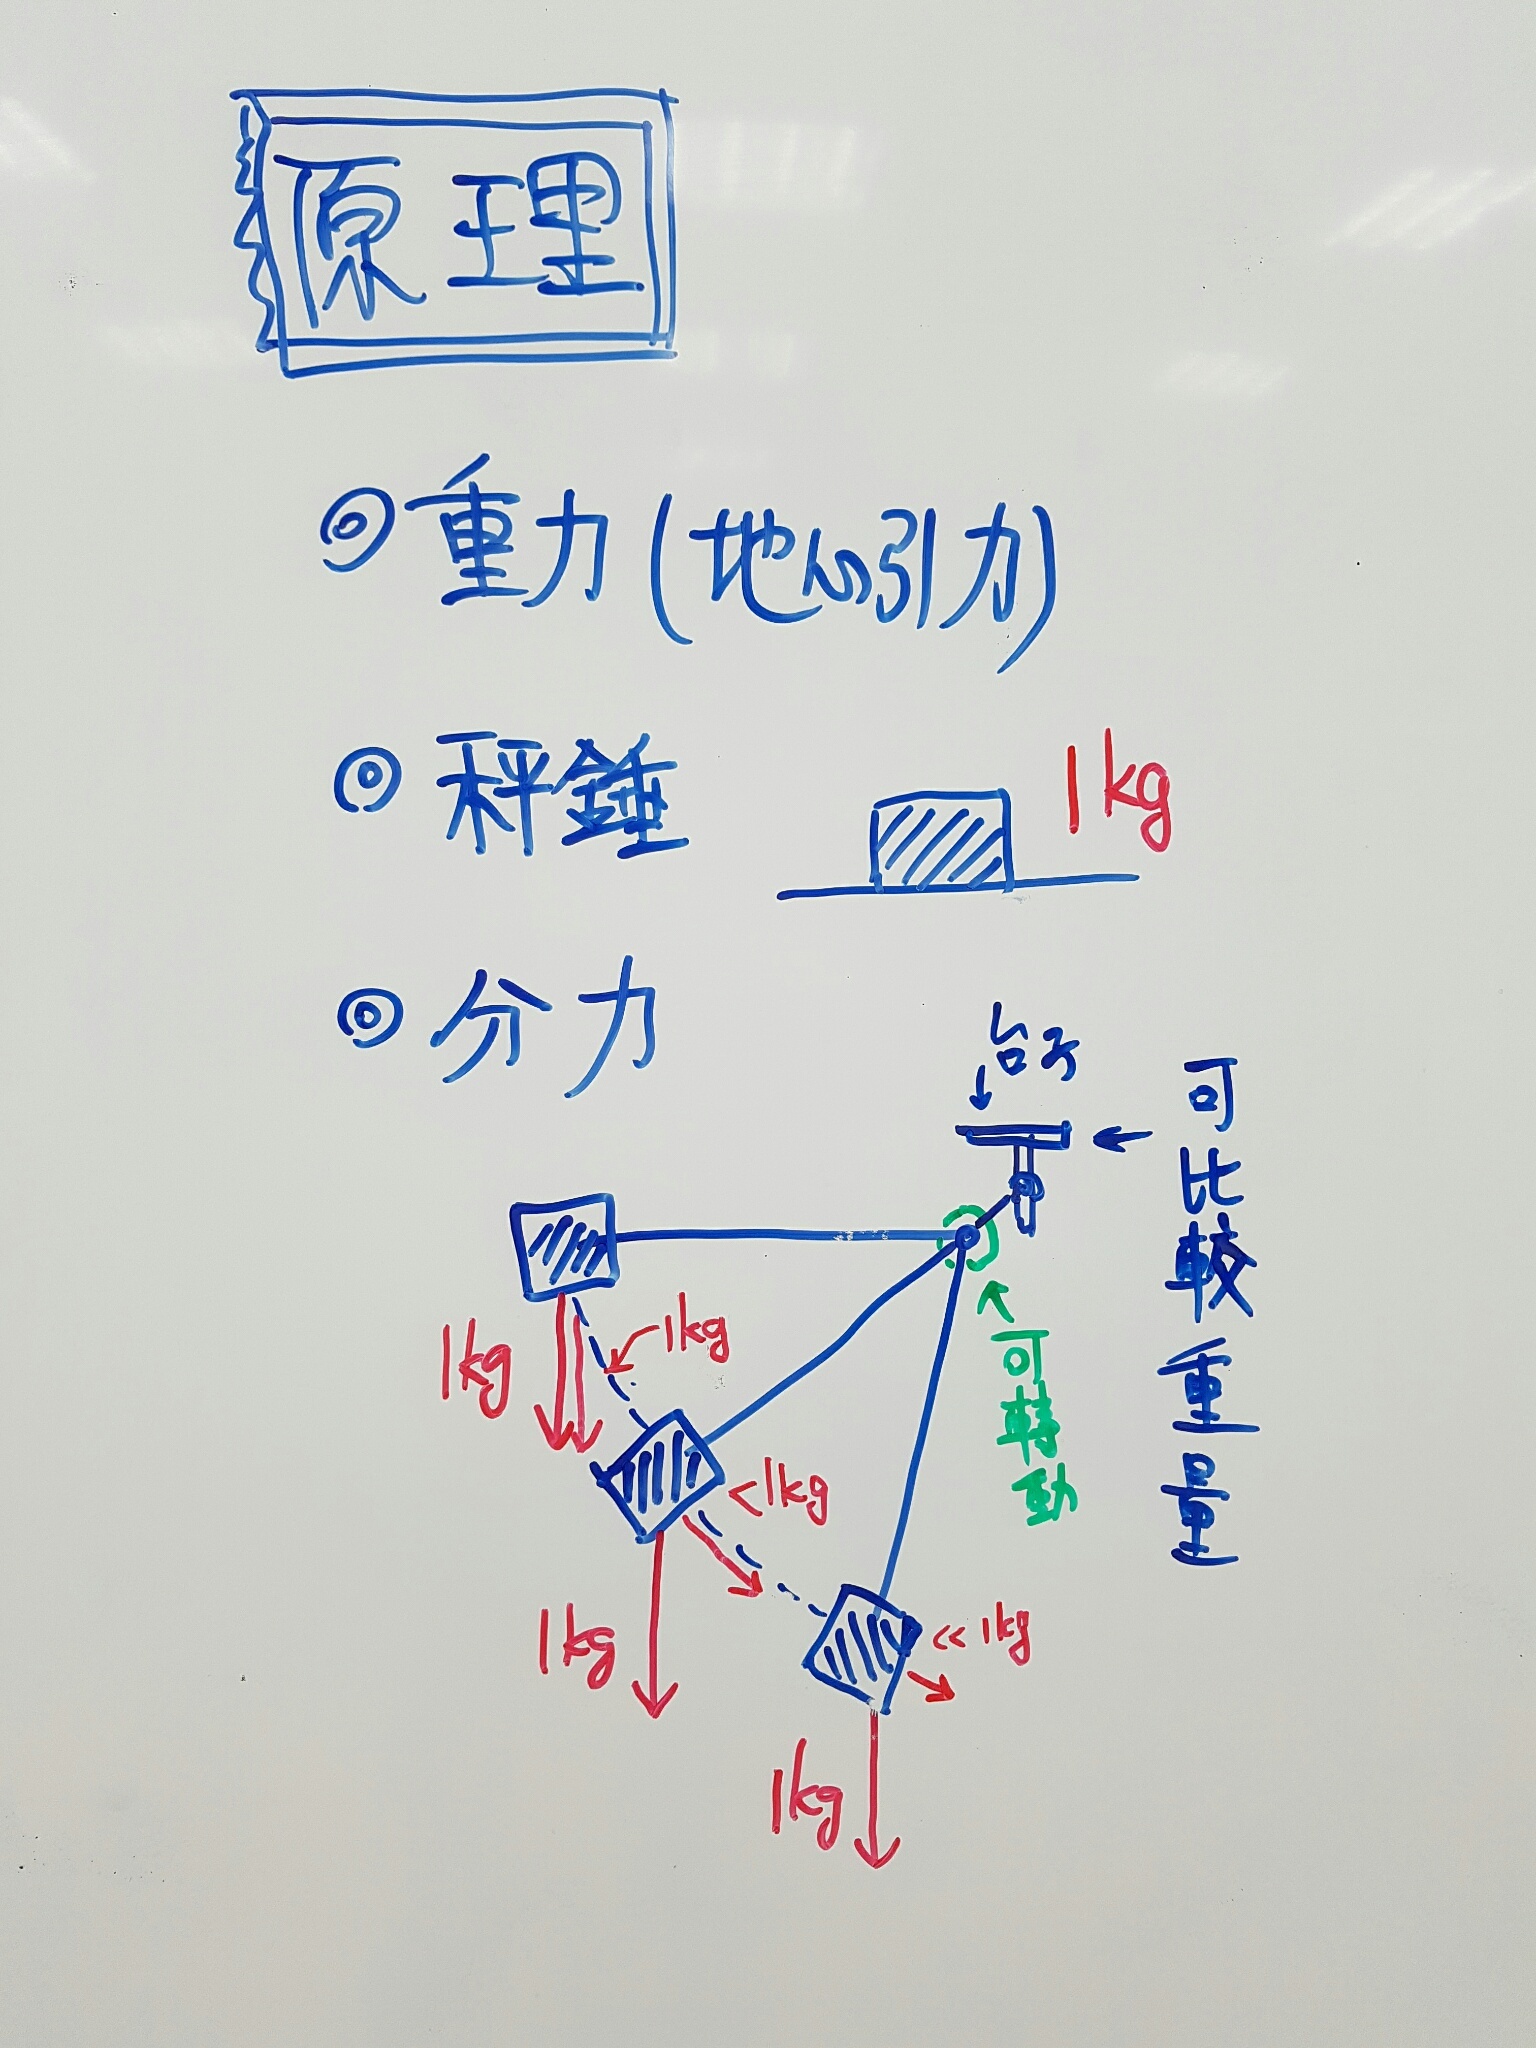 原理
◎重力(地心引力)
◎秤錘
1kg
◎分力
台子
可比較重量
可轉動
1kg
1kg
<1kg
1kg
<<1kg
1kg